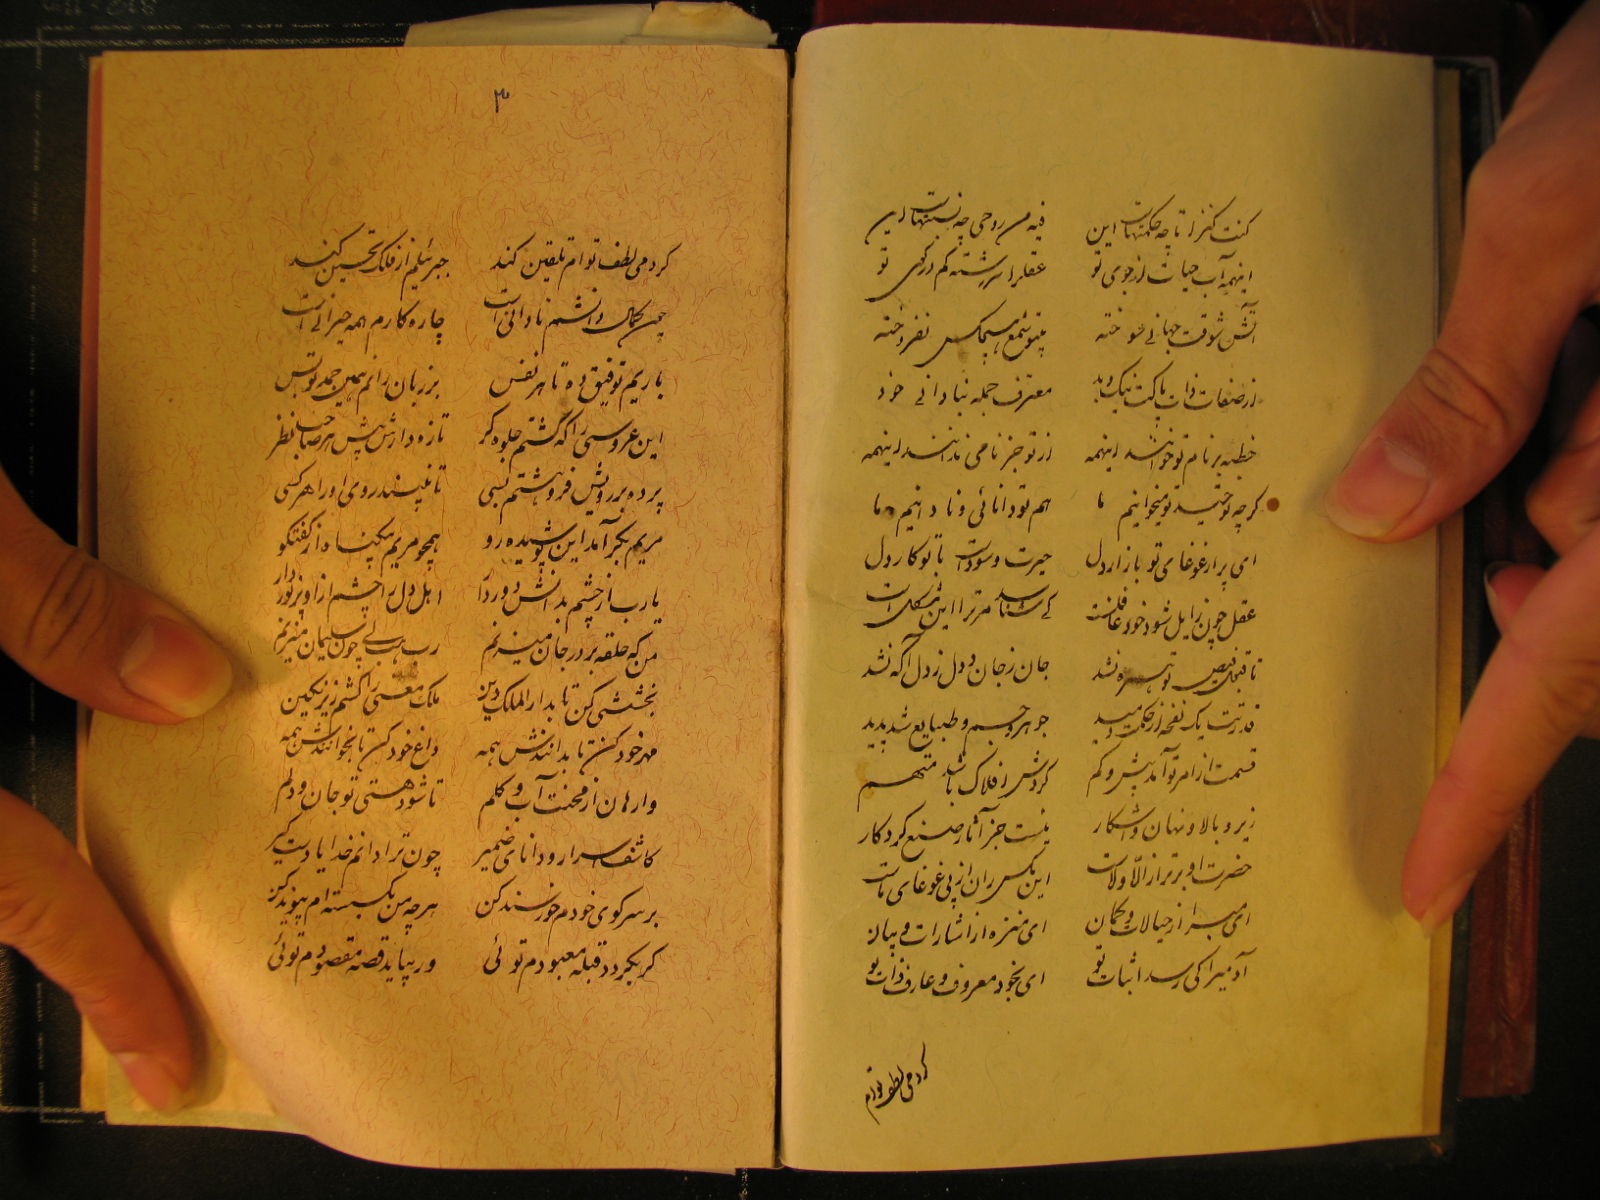 کنت کنزا تا چه حکمتهاست این فیه من روحی چه نسبتهاست این
اینهمه آب حیات از جوی تو عقل را سررشته کم در کوی تو
آتش شوقت جهانی سوخته پیش شمع هیچکس نفروخته
از صفات ذات پاکت نیک و بد معترف جمله بنادانی خود
خطبه بر نام تو خوانند اینهمه از تو جز نامی ندانند اینهمه
کرچه توحید تو میخوانیم ما هم تو دانائی و نادانیم ما
ای پر از غوغای تو بازار دل حیرت و سودات با تو کار دل
عقل چون زایل شود خود غافلست که شناسد مر ترا این مشکل است
تا تجلی فیض تو همره نشد جان ز جان و دل ز دل آکه نشد
قدرتت یک نفخه از حکمت دمید جوهر و جسم و طبایع شد پدید
قسمت از امر تو آمد بیش و کم کردش افلاک باشد متهم
زیر و بالا و نهان و آشکار نیست جز آثار صنع کردکار
حضرت او برتر از الا و لاست این مکس ران از پی غوغای ماست
ای مبرا از خیالات و کمان ای منزه از اشارات و بیان
آدمیرا کی رسد اثبات تو ای بخود معروف و عارف ذات تو
کردمی لطف توام
۳
کردمی لطف توام تلقین کند جبرئیلم از فلک تحسین کند
چون کمال دانشم نادانی است چاره کارم همه حیرانی است
یا ریم توفیق ده تا هر نفس بر زبان رانم همین حمد تو بس
این عروسی را که کشتم جلوه کر تازه دارش پیش هر صاحب نظر
پرده بر رویش فرو هشتم بسی تا نبیند روی او را هر کسی
مریم بکر آمد این پوشیده رو همچو مریم بی کناه از کفتکو
یا رب از چشم بدانش دور دار اهل دل را چشم ازو پر نور دار
من که حلقه بر در جان میزنم رب هب لی چون سلیمان میزنم
بخششی کن تا بدار الملک دین ملک معنی را کشم زیر نکین
مهر خود کن تا بدانندش همه داغ خود کن تا بخوانندش همه
وارهان از محنت آب و کلم تا شود هستی تو جان و دلم
کاشف اسرار و دانای ضمیر چون ترا دانم خدایا دست کیر
بر سر کوی خودم خورسند کن هرچه من بکسسته ام پیوند کن
کر بکردد قبله معبودم توئی ور بیاید قصه مقصودم توئی